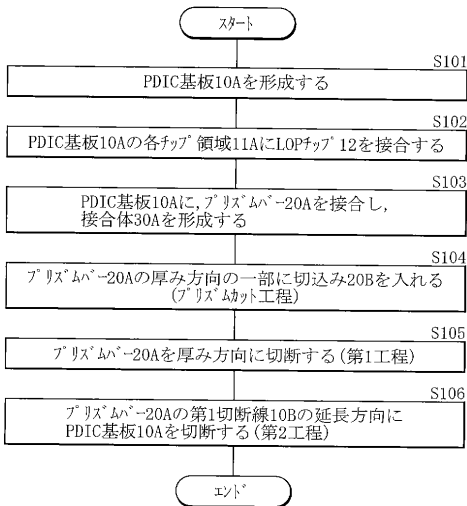 ｽﾀｰﾄ
S101
PDIC基板10Aを形成する
S102
PDIC基板10Aの各ﾁｯﾌﾟ領域11AにLOPﾁｯﾌﾟ12を接合する
S103
PDIC基板10Aに,ﾌﾟﾘｽﾞﾑﾊﾞｰ20Aを接合し,
接合体30Aを形成する
S104
ﾌﾟﾘｽﾞﾑﾊﾞｰ20Aの厚み方向の一部に切込み20Bを入れる
(ﾌﾟﾘｽﾞﾑｶｯﾄ工程)
S105
ﾌﾟﾘｽﾞﾑﾊﾞｰ20Aを厚み方向に切断する(第1工程)
S106
ﾌﾟﾘｽﾞﾑﾊﾞｰ20Aの第1切断線10Bの延長方向に
PDIC基板10Aを切断する(第2工程)
ｴﾝﾄﾞ